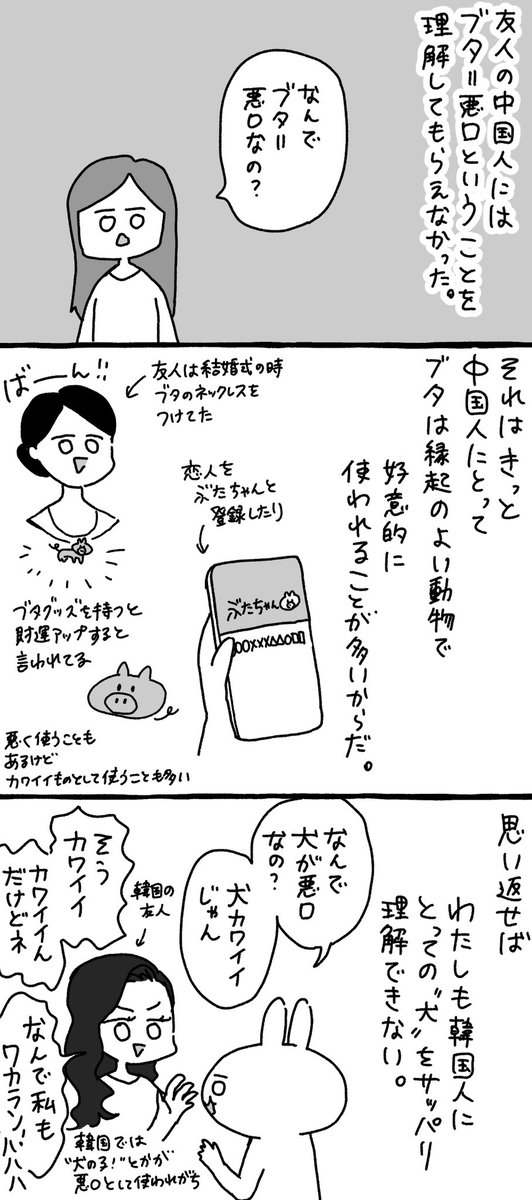 友人の中国人には
ブタ＝悪口ということを
理解してもらえなかった。
なんで
ブタ＝
悪口なの？
それはきっと
中国人にとって
ブタは縁起のよい動物で
好意的に
使われることが多いからだ。
ばーん!!
友人は結婚式の時
ブタのネックレスを
つけてた
恋人を
ぶたちゃんと
登録したり
ぶたちゃん
〇〇XXX△△〇□□
ブタグッズを持つと
財運アップすると
言われてる
悪く使うことも
あるけど
カワイイものとして使うことも多い
思い返せば
わたしも韓国人に
とっての"犬"をサッパリ
理解できない。
なんで
犬が悪口
なの？
犬カワイイ
じゃん
韓国の
友人
そう
カワイイ
カワイイん
だけどネ
なんで私も
ワカランハハハ
韓国では
"犬の子！"とかが
悪口として使われがち